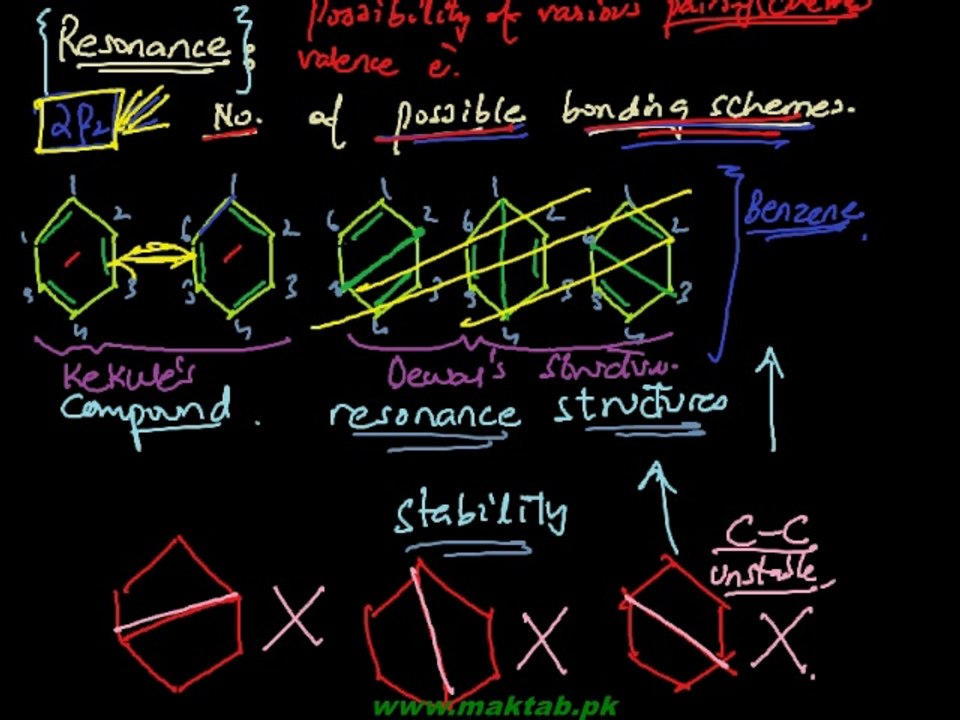 Possibility of various pairing schemes
valence e⁻.
Resonance:
2Pz No. of possible bonding schemes.
Benzene.
1 1 1 1 1
1 2 6 2 6 2 6 2 2
5 3 5 3 3 5 3 5 3
4 4 4 4 4
Kekule's Dewar's structure.
Compound. resonance structures
stability
C-C
unstable.
www.maktab.pk